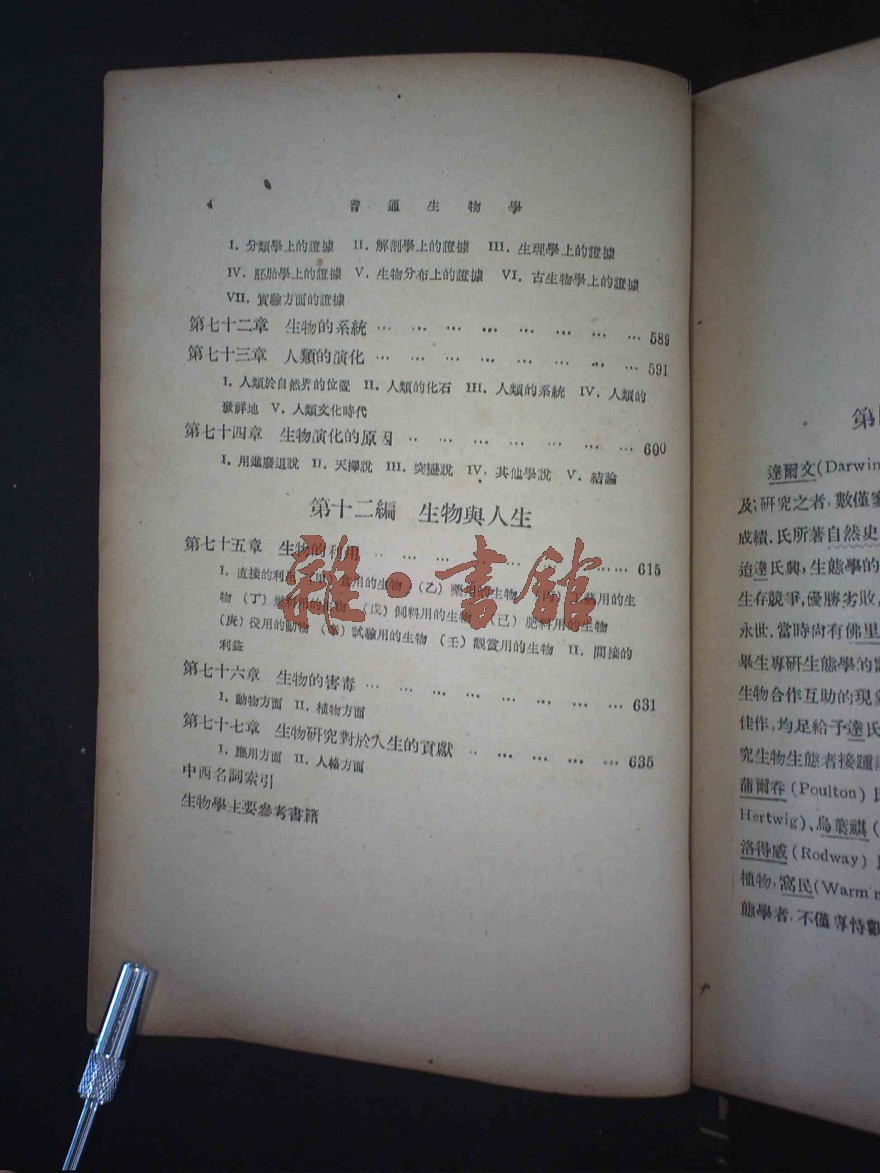 4 普通生物學
I. 分類學上的證據 II. 解剖學上的證據 III. 生理學上的證據
IV. 胚胎學上的證據 V. 生物分布上的證據 VI. 古生物學上的證據
VII. 實驗方面的證據
第七十二章 生物的系統 … … … … … … … … 589
第七十三章 人類的演化 … … … … … … … … 591
I. 人類於自然界的位置 II. 人類的化石 III. 人類的系統 IV. 人類的
發祥地 V. 人類文化時代
第七十四章 生物演化的原因 … … … … … … … 600
I. 用進廢退說 II. 天擇說 III. 突變說 IV. 其他學說 V. 結論
第十二編 生物與人生
第七十五章 生物的利用 … … … … … … … 615
I. 直接的利用 食用的生物 (乙) 藥用的生物 用的生
物 (丁) 的生物 (戊) 飼料用的生物 (己) 肥料用的生物
(庚) 役用的動物 試驗用的生物 (壬) 觀賞用的生物 II. 間接的
利益
第七十六章 生物的害毒 … … … … … … … … 631
I. 動物方面 II. 植物方面
第七十七章 生物研究對於人生的貢獻 … … … … … 635
I. 應用方面 II. 人格方面
中西名詞索引
生物學主要參考書籍
雜·書館
第
達爾文(Darwin
及;研究之者,數僅
成績,氏所著自然史
迨達氏興,生態學的
生存競爭,優勝劣敗,
永世,當時尚有佛里
畢生專研生態學的
生物合作互助的現
佳作,均足給予達氏
究生物生態者接踵
蒲爾吞(Poulton)
Hertwig)、烏葉祺(
洛得威(Rodway)
植物,窩民(Warm
態學者,不僅專恃觀